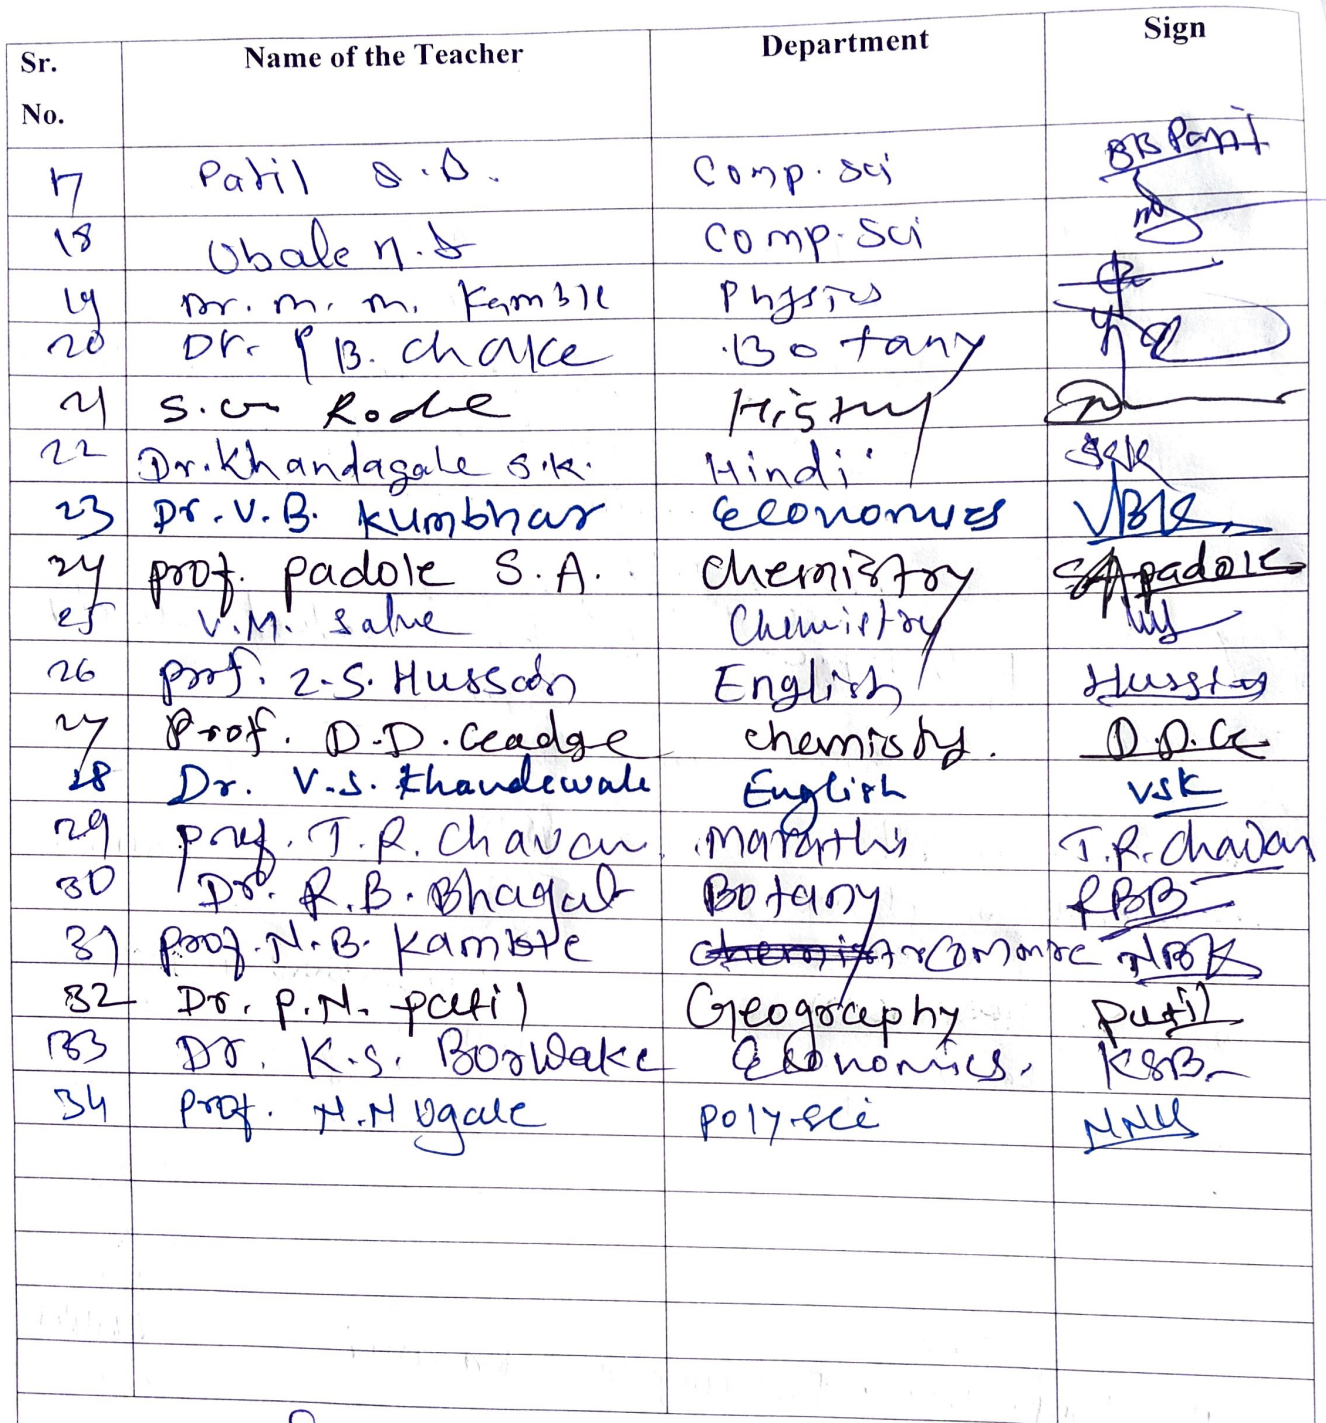 Sr. No. Name of the Teacher Department Sign
17 Patil S.D. Comp. Sci
18 Ubale N.S Comp. Sci
19 Dr. M. M. Kamble Physics
20 Dr. P B. Chalke Botany
21 S. Rode History
22 Dr. Khandagale S.K. Hindi SSK
23 Dr. V. B. Kumbhar Economics VBK
24 prof. padole S. A. Chemistry SA padole
25 V.M. Salve Chemistry
26 prof. Z.S. Hussain English Hussain
27 Prof. D.D. Gadge chemistry. D.D.G
28 Dr. V.S. Khandewale English VSK
29 prof. T. R. Chavan Marathi T.R. Chavan
30 Dr. R.B. Bhagat Botany RBB
31 prof. N.B. Kamble Commerce NBK
32 Dr. P.N. patil Geography patil
33 Dr. K.S. Borwake Economics. KSB
34 prof. N.N Ugale poly.sci NNU